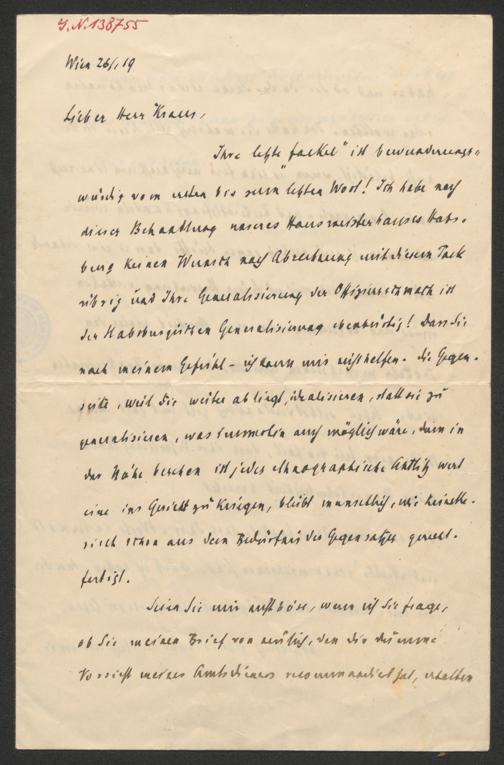 J.N. 138755
Wien 26/I 19
Lieber Herr Kraus,
Ihre letzte „Fackel" ist bewunderungs-
würdig vom ersten bis zum letzten Wort! Ich habe nach
dieser Behandlung unseres Hausmeisterhauses Habs-
burg keinen Wunsch nach Abrechnung mit diesem Pack
übrig und Ihre Generalisierung der Offiziersschmach ist
der Habsburgischen Generalisierung ebenbürtig! Dass Sie
nach meinem Gefühl – ich kann mir nicht helfen – die Gegen-
seite, weil sie weiter ab liegt, idealisieren, statt sie zu
generalisieren, was immerhin auch möglich wäre, denn in
der Nähe besehen ist jedes ethnographische Antlitz wert
eine ins Gesicht zu kriegen, bleibt menschlich, wie künstle-
risch schon aus dem Bedürfnis des Gegensatzes gerecht-
fertigt.
Seien Sie mir nicht böse, wenn ich Sie frage,
ob Sie meinen Brief von neulich, den die dumme
Vorsicht meines Amtsdieners recommandiert hat, erhalten